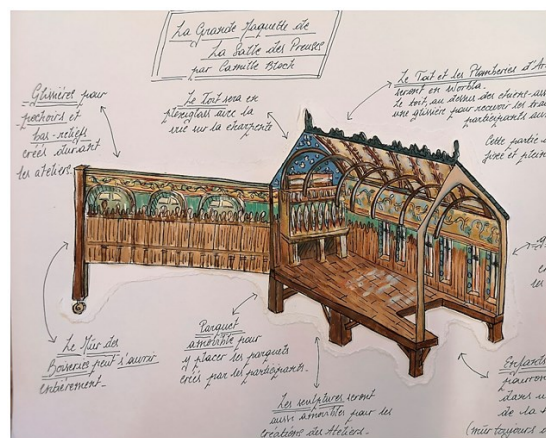 La Grande Maquette de
La Salle des Preuses
par Camille Bloch
Glissières pour
pochoirs et
bas-reliefs
créés durant
les ateliers.
Le Toit sera en
plexiglass avec la
vue sur la charpente
Le Toit et les Plomberies d'A
seront en worbla.
Le toit, au dessus des
une glissière pour recevoir les
participants au
Cette partie
fixe et plein
Le Mur des
Boiseries peut s'ouvrir
entièrement.
Parquet
amovible pour
y placer les parquets
créés par les participants.
Les sculptures seront
aussi amovibles pour les
créations des Ateliers.
Enfants
pourront
dans
de la
(mur toujours